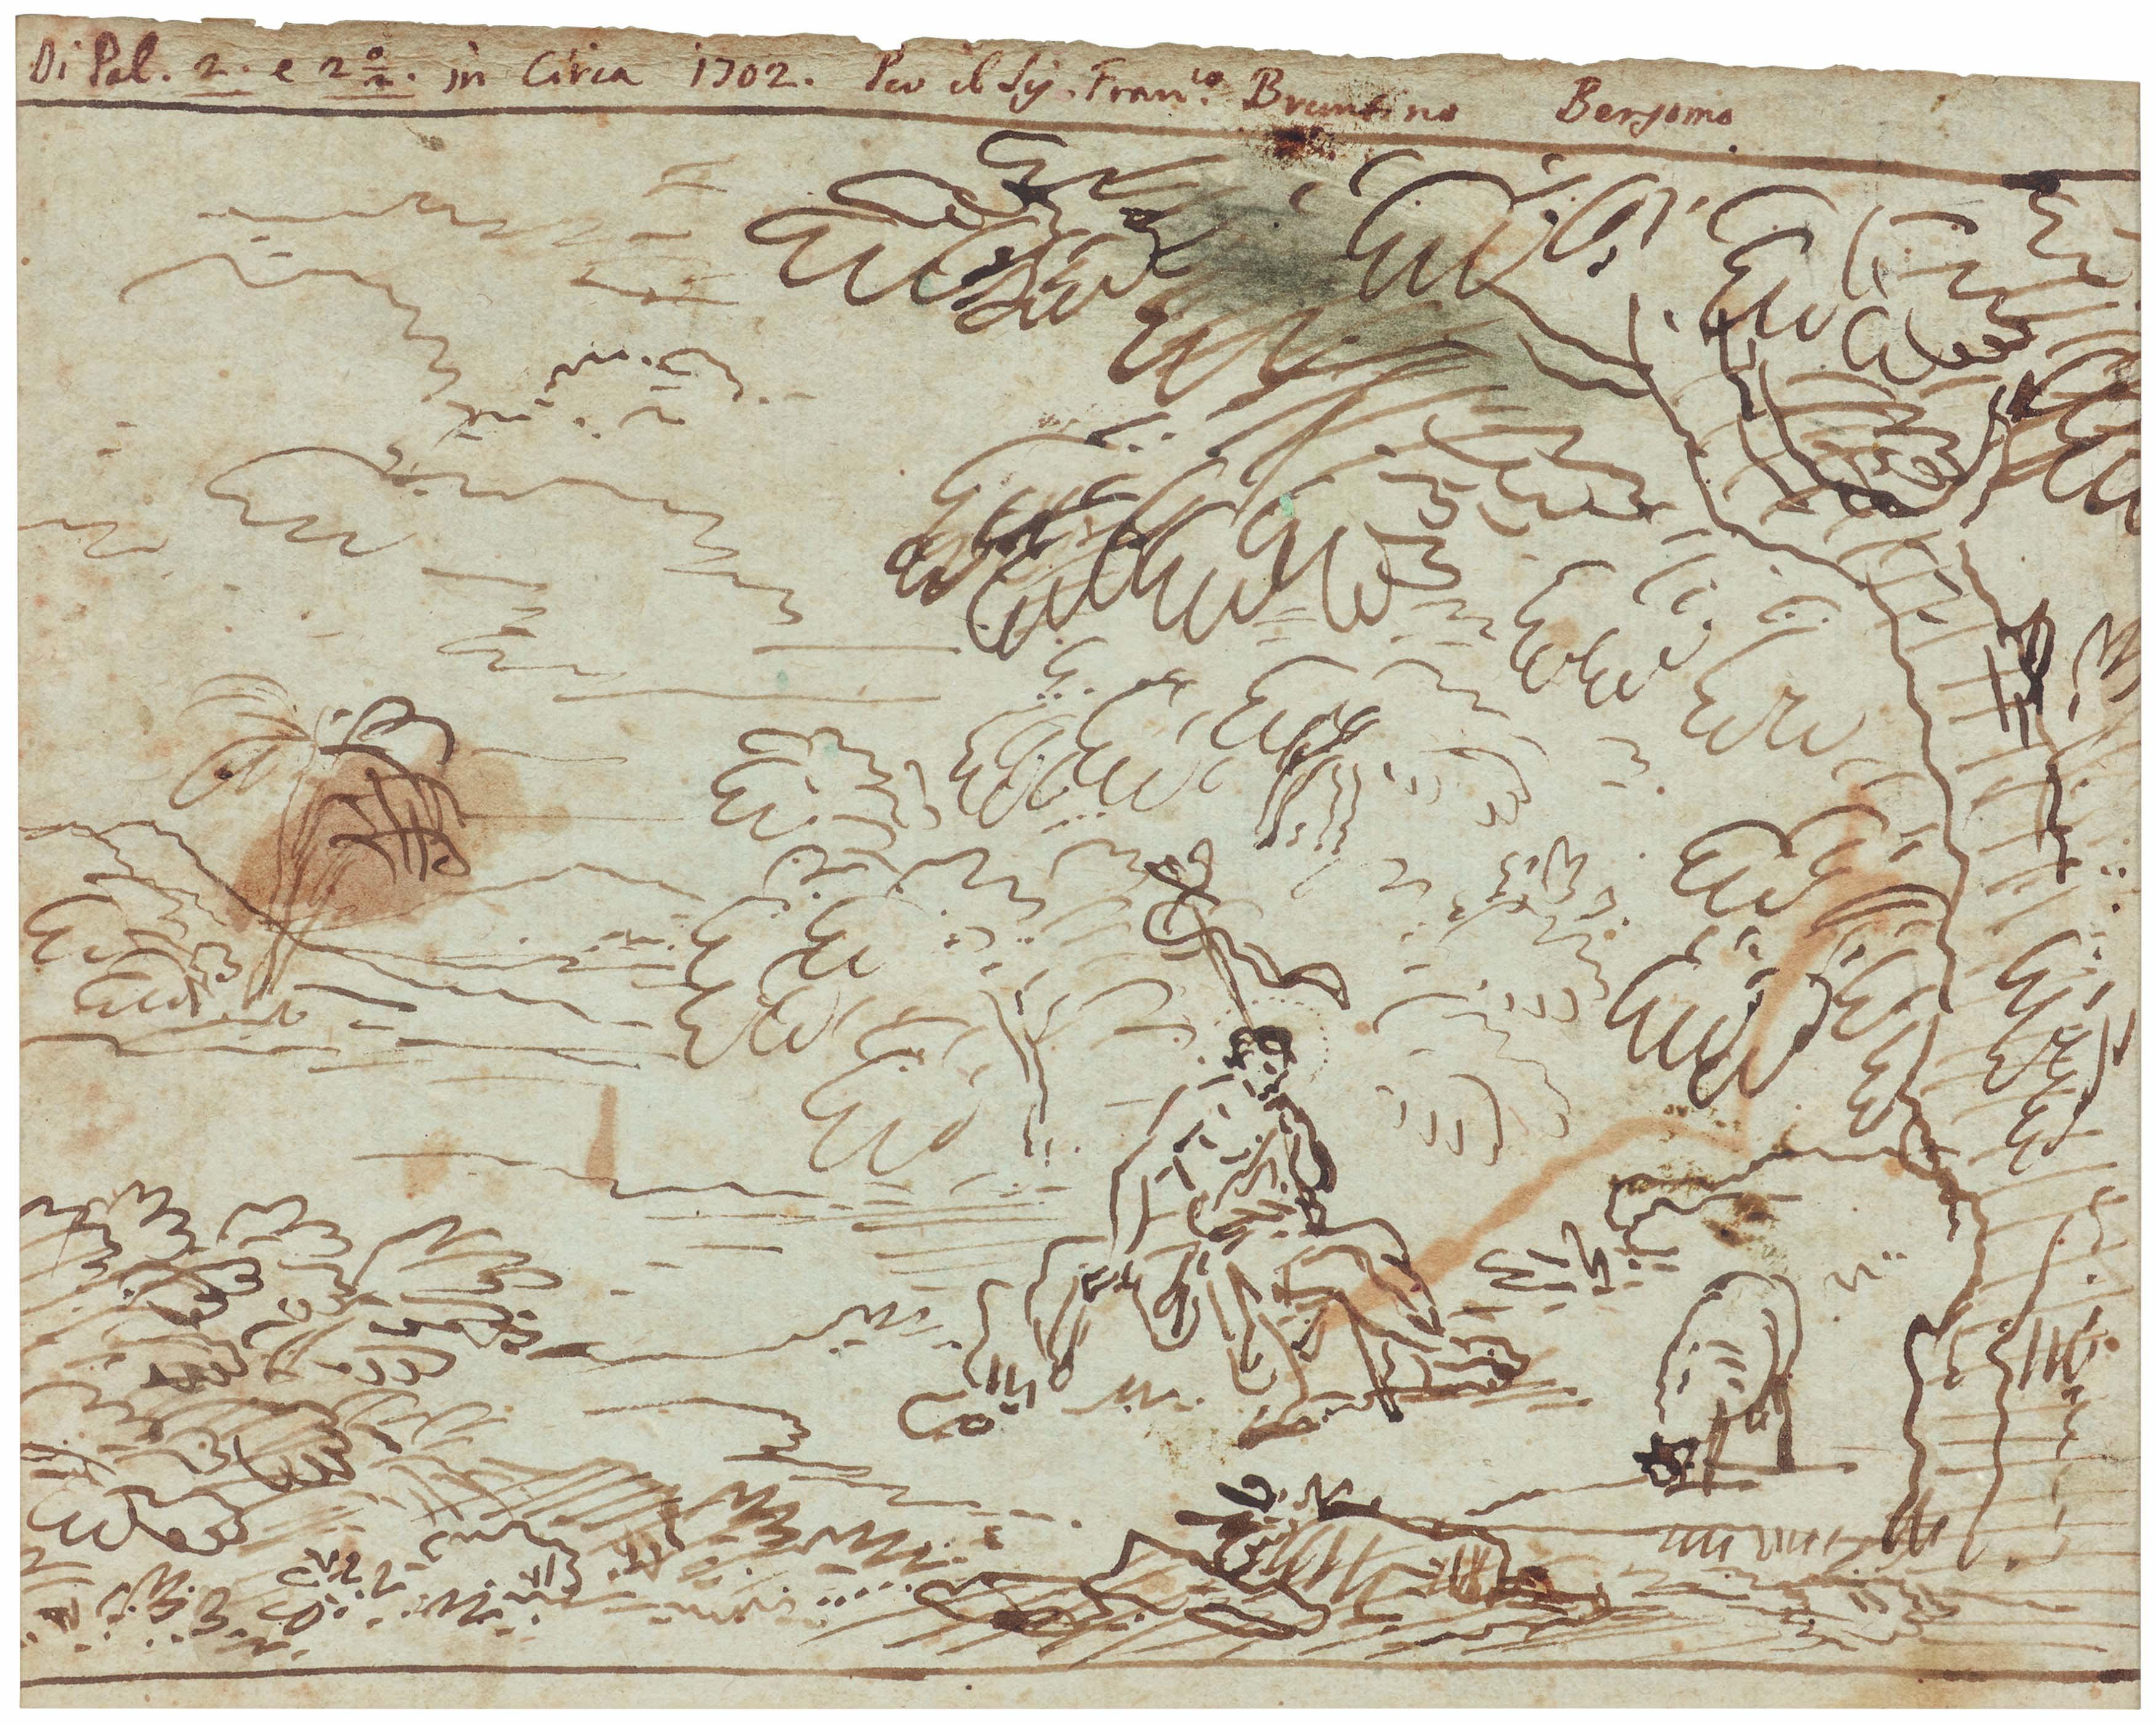 Di Pal. 2. e 2 o/2. in Circa 1702. Per il Sig. Fran.co Bruntino Bergomo